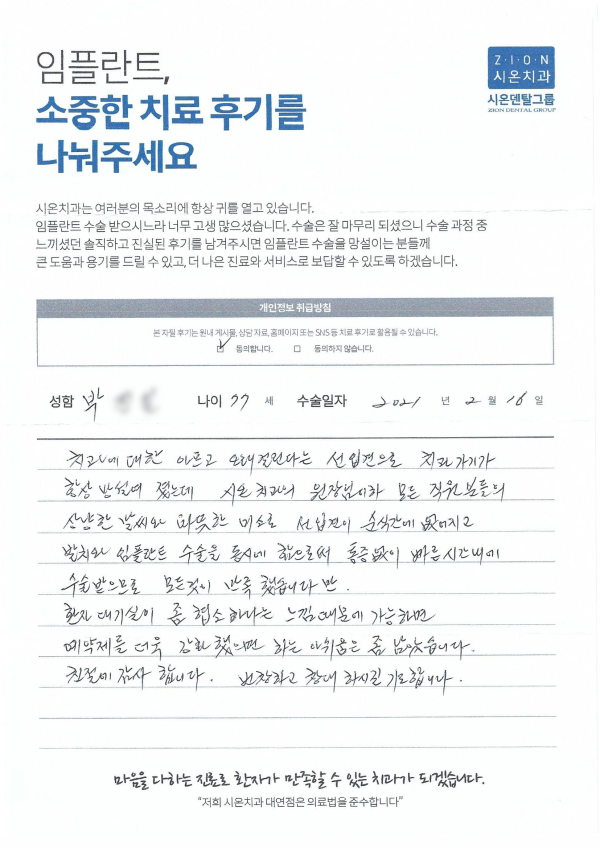 임플란트,
소중한 치료 후기를
나눠주세요
Z·I·O·N
시온치과
시온덴탈그룹
ZION DENTAL GROUP
시온치과는 여러분의 목소리에 항상 귀를 열고 있습니다.
임플란트 수술 받으시느라 너무 고생 많으셨습니다. 수술은 잘 마무리 되셨으니 수술 과정 중
느끼셨던 솔직하고 진실된 후기를 남겨주시면 임플란트 수술을 망설이는 분들께
큰 도움과 용기를 드릴 수 있고, 더 나은 진료와 서비스로 보답할 수 있도록 하겠습니다.
개인정보 취급방침
본 자필 후기는 원내 게시물, 상담 자료, 홈페이지 또는 SNS 등 치료 후기로 활용될 수 있습니다.
☑ 동의합니다. ☐ 동의하지 않습니다.
성함 박 나이 77 세 수술일자 2021 년 2 월 16 일
치과에 대한 아프고 오래걸린다는 선입견으로 치과 가기가
항상 망설여 졌는데 시온치과의 원장님이하 모든 직원분들의
상냥한 말씨와 따뜻한 미소로 선입견이 순식간에 없어지고
발치와 임플란트 수술을 동시에 함으로써 통증없이 빠른시간내에
수술받으므로 모든것이 만족 했습니다만.
환자 대기실이 좀 협소하다는 느낌때문에 가능하면
예약제를 더욱 강화 했으면 하는 아쉬움은 좀 남았습니다.
친절에 감사 합니다. 번창하고 창대 하시길 기도합니다.
마음을 다하는 진료로 환자가 만족할 수 있는 치과가 되겠습니다.
"저희 시온치과 대연점은 의료법을 준수합니다"